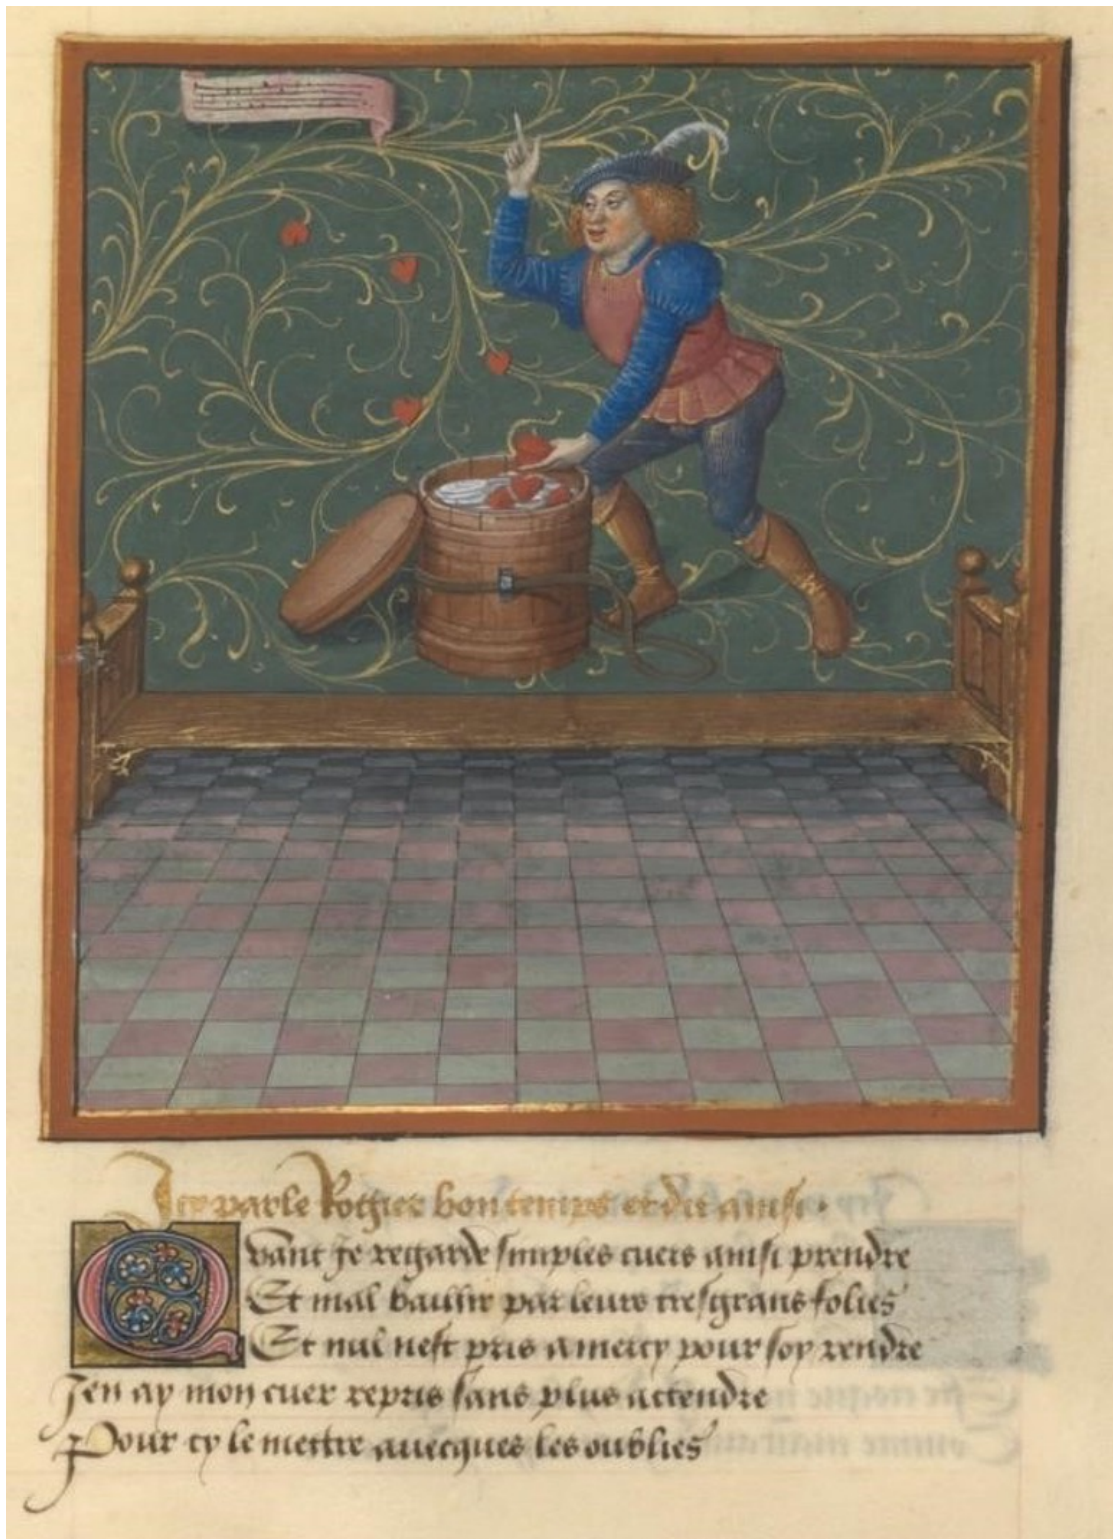 Icy parle Rogier bon temps et dit ainsi.
Quant Je regarde simples cuers ainsi prendre
Et mal baillir par leurs tresgrans folies
Et nul nest pris a mercy pour soy rendre
Jen ay mon cuer repris sans plus actendre
Pour cy le mettre auecques les oublies